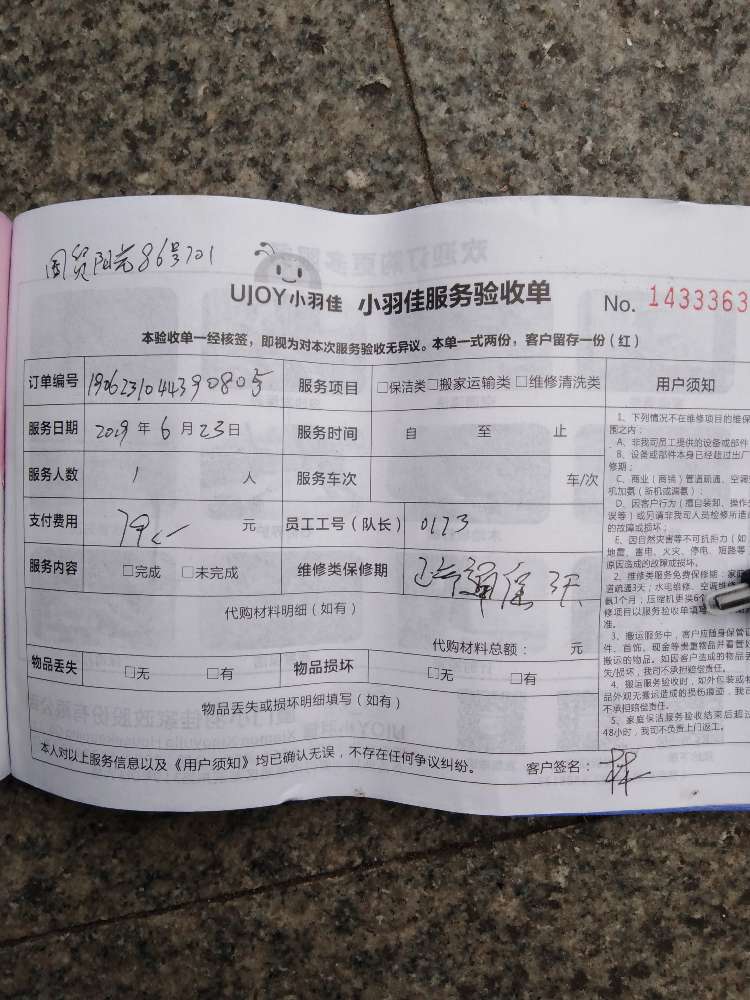 国贸阳光86号701
UJOY小羽佳 小羽佳服务验收单 No. 1433363
本验收单一经核签，即视为对本次服务验收无异议。本单一式两份，客户留存一份（红）
订单编号 190623104439080号 服务项目 □保洁类□搬家运输类 □维修清洗类
服务日期 2019 年 6 月 23 日 服务时间 自 至 止
服务人数 1 人 服务车次 车/次
支付费用 79 元 员工工号（队长） 0123
服务内容 □完成 □未完成 维修类保修期 3天
代购材料明细（如有）
代购材料总额： 元
物品丢失 □无 □有 物品损坏 □无 □有
物品丢失或损坏明细填写（如有）
本人对以上服务信息以及《用户须知》均已确认无误，不存在任何争议纠纷。 客户签名：林
用户须知
1、下列情况不在维修项目的维保
围之内：
A、非我司员工提供的设备或部件
B、设备或部件本身已经超过出厂
修期；
C、商业（商铺）管道疏通、空调
机加氨（新机或漏氨）；
D、因客户行为（擅自装卸、操作
误等）或另请非我司人员检修所造
的故障或损坏；
E、因自然灾害等不可抗拒力（如
地震、雷电、火灾、停电、短路等
原因造成的故障或损坏。
2、维修类服务免费保修期：家庭
道疏通3天；水电维修、空调维修
氨1个月；压缩机更换6个
修项目以服务验收单填写
准。
3、搬运服务中，客户应随身保管证
件、首饰、现金等贵重物品并看管好
搬运的物品。如因客户造成的物品丢
失/损坏，我司不承担赔偿责任。
4、搬运服务验收时，如外包装或
品外观无搬运造成的损伤痕迹，我司
不承担赔偿责任。
5、家庭保洁服务验收结束后超过
48小时，我司不负责上门返工。